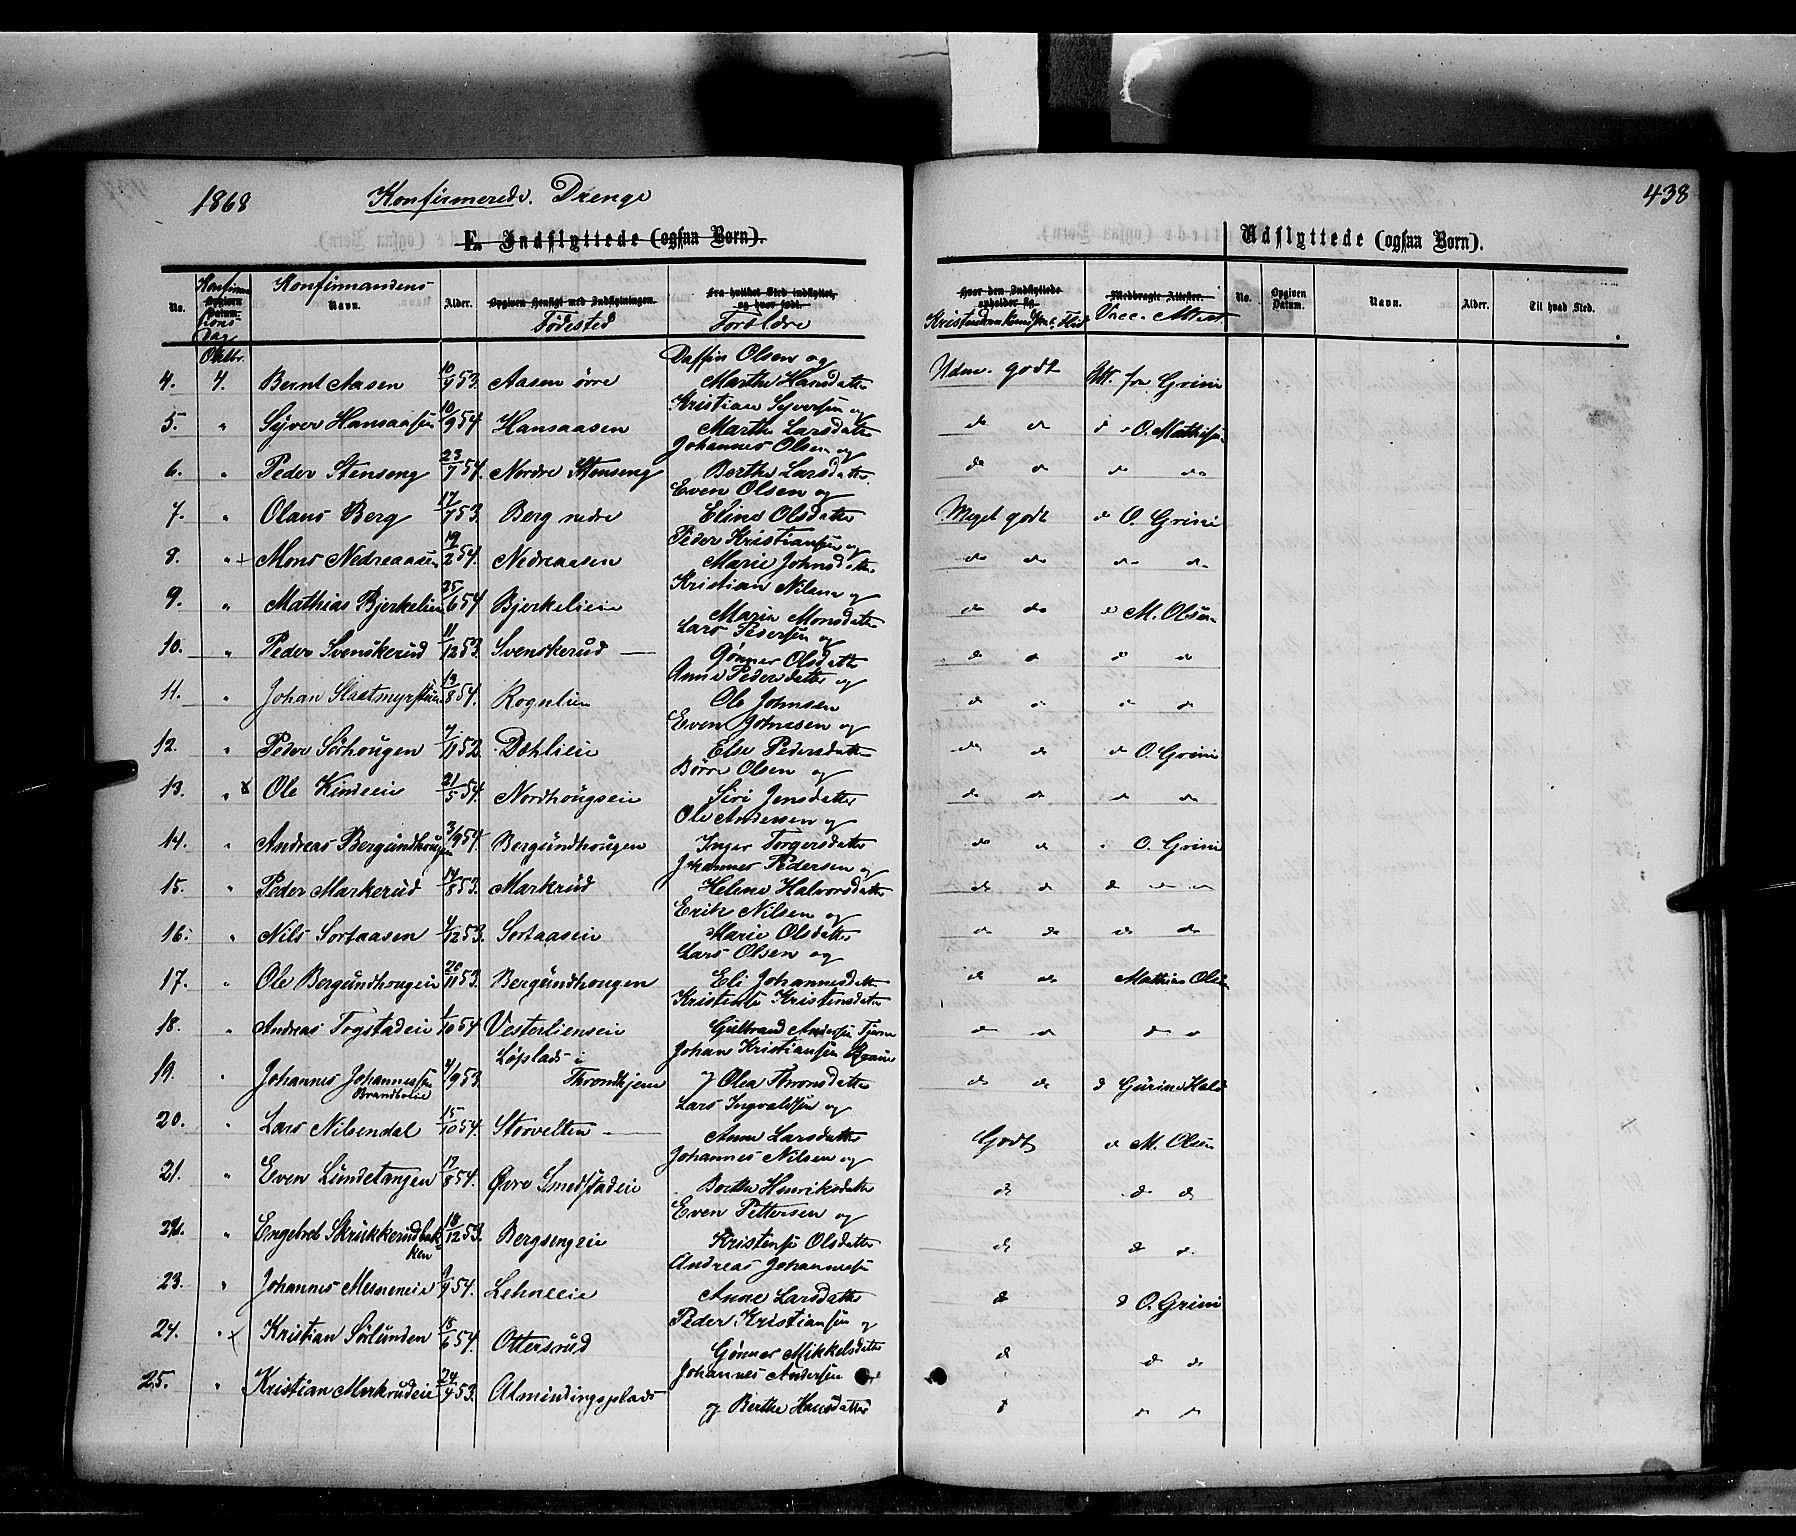 1868 Konfirmerede. Drenge
438
E. Indflyttede (ogsaa Børn).
Udflyttede (ogsaa Børn).
No. Konfirmations Dag Opgiven Datum. Konfirmandens Navn. Alder. Opgiven Hensigt med Indflytningen. Fødested Fra hvilket Sted indflyttet, og hvor født. Forældre Hvor den Indflyttede opholder sig Kristendomskundsk. Flid Medbragte Attester. Vacc. Attest No. Opgiven Datum. Navn. Alder. Til hvad Sted.
Oktbr.
4. 4. Bernt Aasen 10/9 53. Aasen øvre Daffin Olsen og Marthe Hansdatter Udm. godt Att. fra Grini
5. " Syver Hansaasen 10/9 54 Hansaasen Kristian Syversen og Marthe Larsdatter do do d O. Mathis
6. " Peder Stenseng 23/7 54. Nordre Stenseng Johannes Olsen og Berthe Larsdatter do do do do
7. " Olaus Berg 17/7 53. Berg nedre Even Olsen og Eline Olsdatter Meget godt d O. Grini
8. " + Mons Nedreaasen 19/2 54. Nedreaasen Peder Kristiansen og Marie Johnsdatter do do do do
9. " Mathias Bjerkelien 25/6 54 Bjerkelien Kristian Nilsen og Maria Monsdatter do do d M. Olsen
10. " Peder Svenskerud 11/12 53. Svenskerud Lars Pedersen og Gønner Olsdatter do do d d
11. " Johan Slaatmyrstuen 13/8 54. Rognlien Anne Pedersdatter og Ole Johnsen d d d d
12. " Peder Sørhougen 7/11 52. Dæhlieie Even Johnsen og Else Pedersdatter do do do O. Grini
13. " x Ole Kindeeie 21/5 54. Nordhougseie Børre Olsen og Siri Jensdatter do do d do
14. " Andreas Bergundhougen 3/9 54. Bergundhougen Ole Andersen og Inger Torgersdatter do d O. Grini
15. " Peder Markerud 14/8 53. Markrud Johannes Pedersen og Helene Halvorsdatter d d d
16. " Nils Sortaasen 4/12 53. Sortaaseie Erik Nilsen og Marie Olsdatter d do d do
17. " Ole Bergundhougeie 20/11 53. Bergundhougen Lars Olsen og Eli Johannesdatter d do Mathias Olsen
18. " Andreas Togstadeie 1/10 54 Vestorlienseie Kristense Kristensdatter Gulbrand Andersen Tjerne d d d d
19. " Johannes Johannessen Brandboeie 4/9 53. Løplads i Throndhjem Johan Kristiansen og Olea Thronsdatter d do d Gurine Hals
20. " Lars Nilsendal 15/10 54. Storvelten Lars Ingvaldsen og Anne Larsdatter Godt d M. Olsen
21. " Even Lundetangen 17/8 54. Øvre Smedstadeie Johannes Nilsen og Berthe Henriksdatter d d d
22. " Engebret Skrukkerudbakken 18/12 53. Bergsengeie Even Pettersen og Kristense Olsdatter d d d
23. " Johannes Mesneneie 9/9 54. Lehneeie Andreas Johannesen Anne Larsdatter d d O. Grini
24. " x Kristian Sørlunden 18/6 54. Ottersrud Peder Kristiansen og Gønner Mikkelsdatter d d d
25. " Kristian Markrudeie 24/4 53. Almindingsplads Johannes Andersen og Berthe Hansdatter d d d